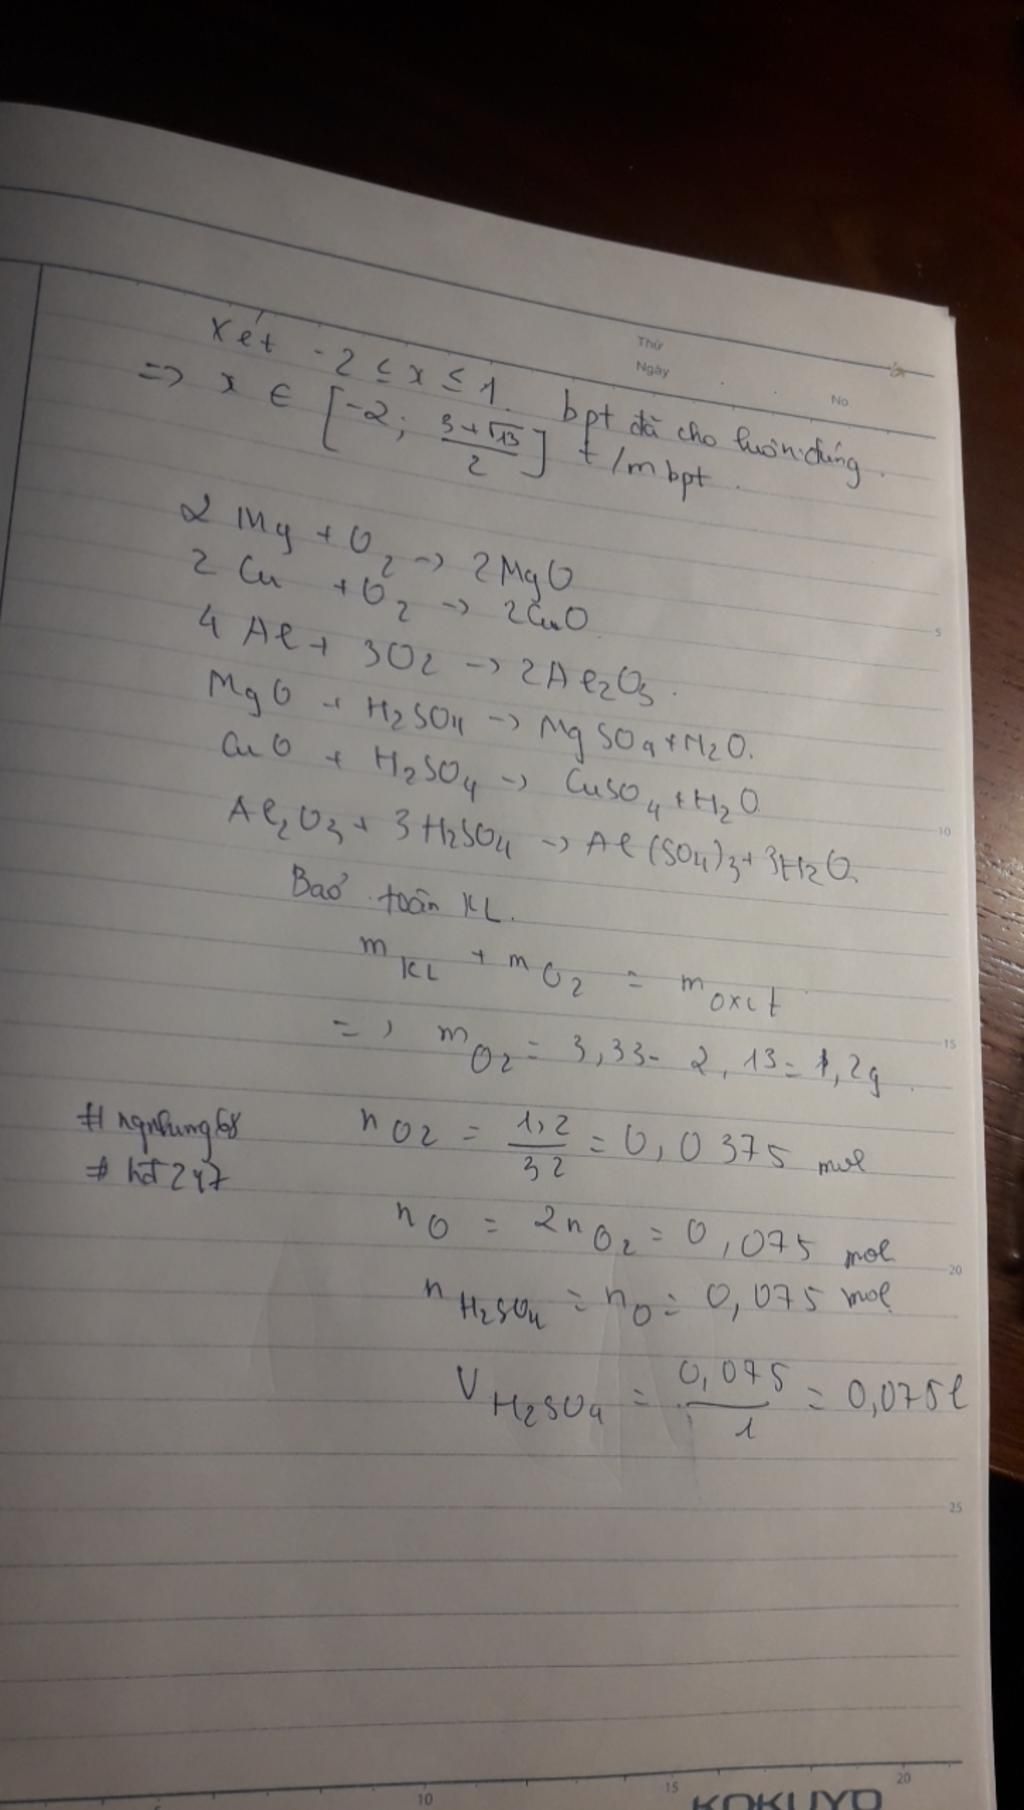 Thứ
Ngày
No
Xét -2 ≤ x ≤ 1. bpt đã cho luôn đúng.
=> x ∈ [-2; (3+√13)/2] t/m bpt.
2Mg + O₂ -> 2MgO
2Cu + O₂ -> 2CuO.
4Al + 3O₂ -> 2Al₂O₃.
MgO + H₂SO₄ -> MgSO₄ + H₂O.
CuO + H₂SO₄ -> CuSO₄ + H₂O
Al₂O₃ + 3H₂SO₄ -> Al(SO₄)₃ + 3H₂O.
Bảo toàn KL.
m KL + m O₂ = m oxit
=> m O₂ = 3,33 - 2,13 = 1,2g.
n O₂ = 1,2/32 = 0,0375 mol
# ngnhung68
# hđ247
n O = 2n O₂ = 0,075 mol
n H₂SO₄ = n O = 0,075 mol
V H₂SO₄ = 0,075/1 = 0,075l
5
10
15
20
25
10
15
20
KOKUYO